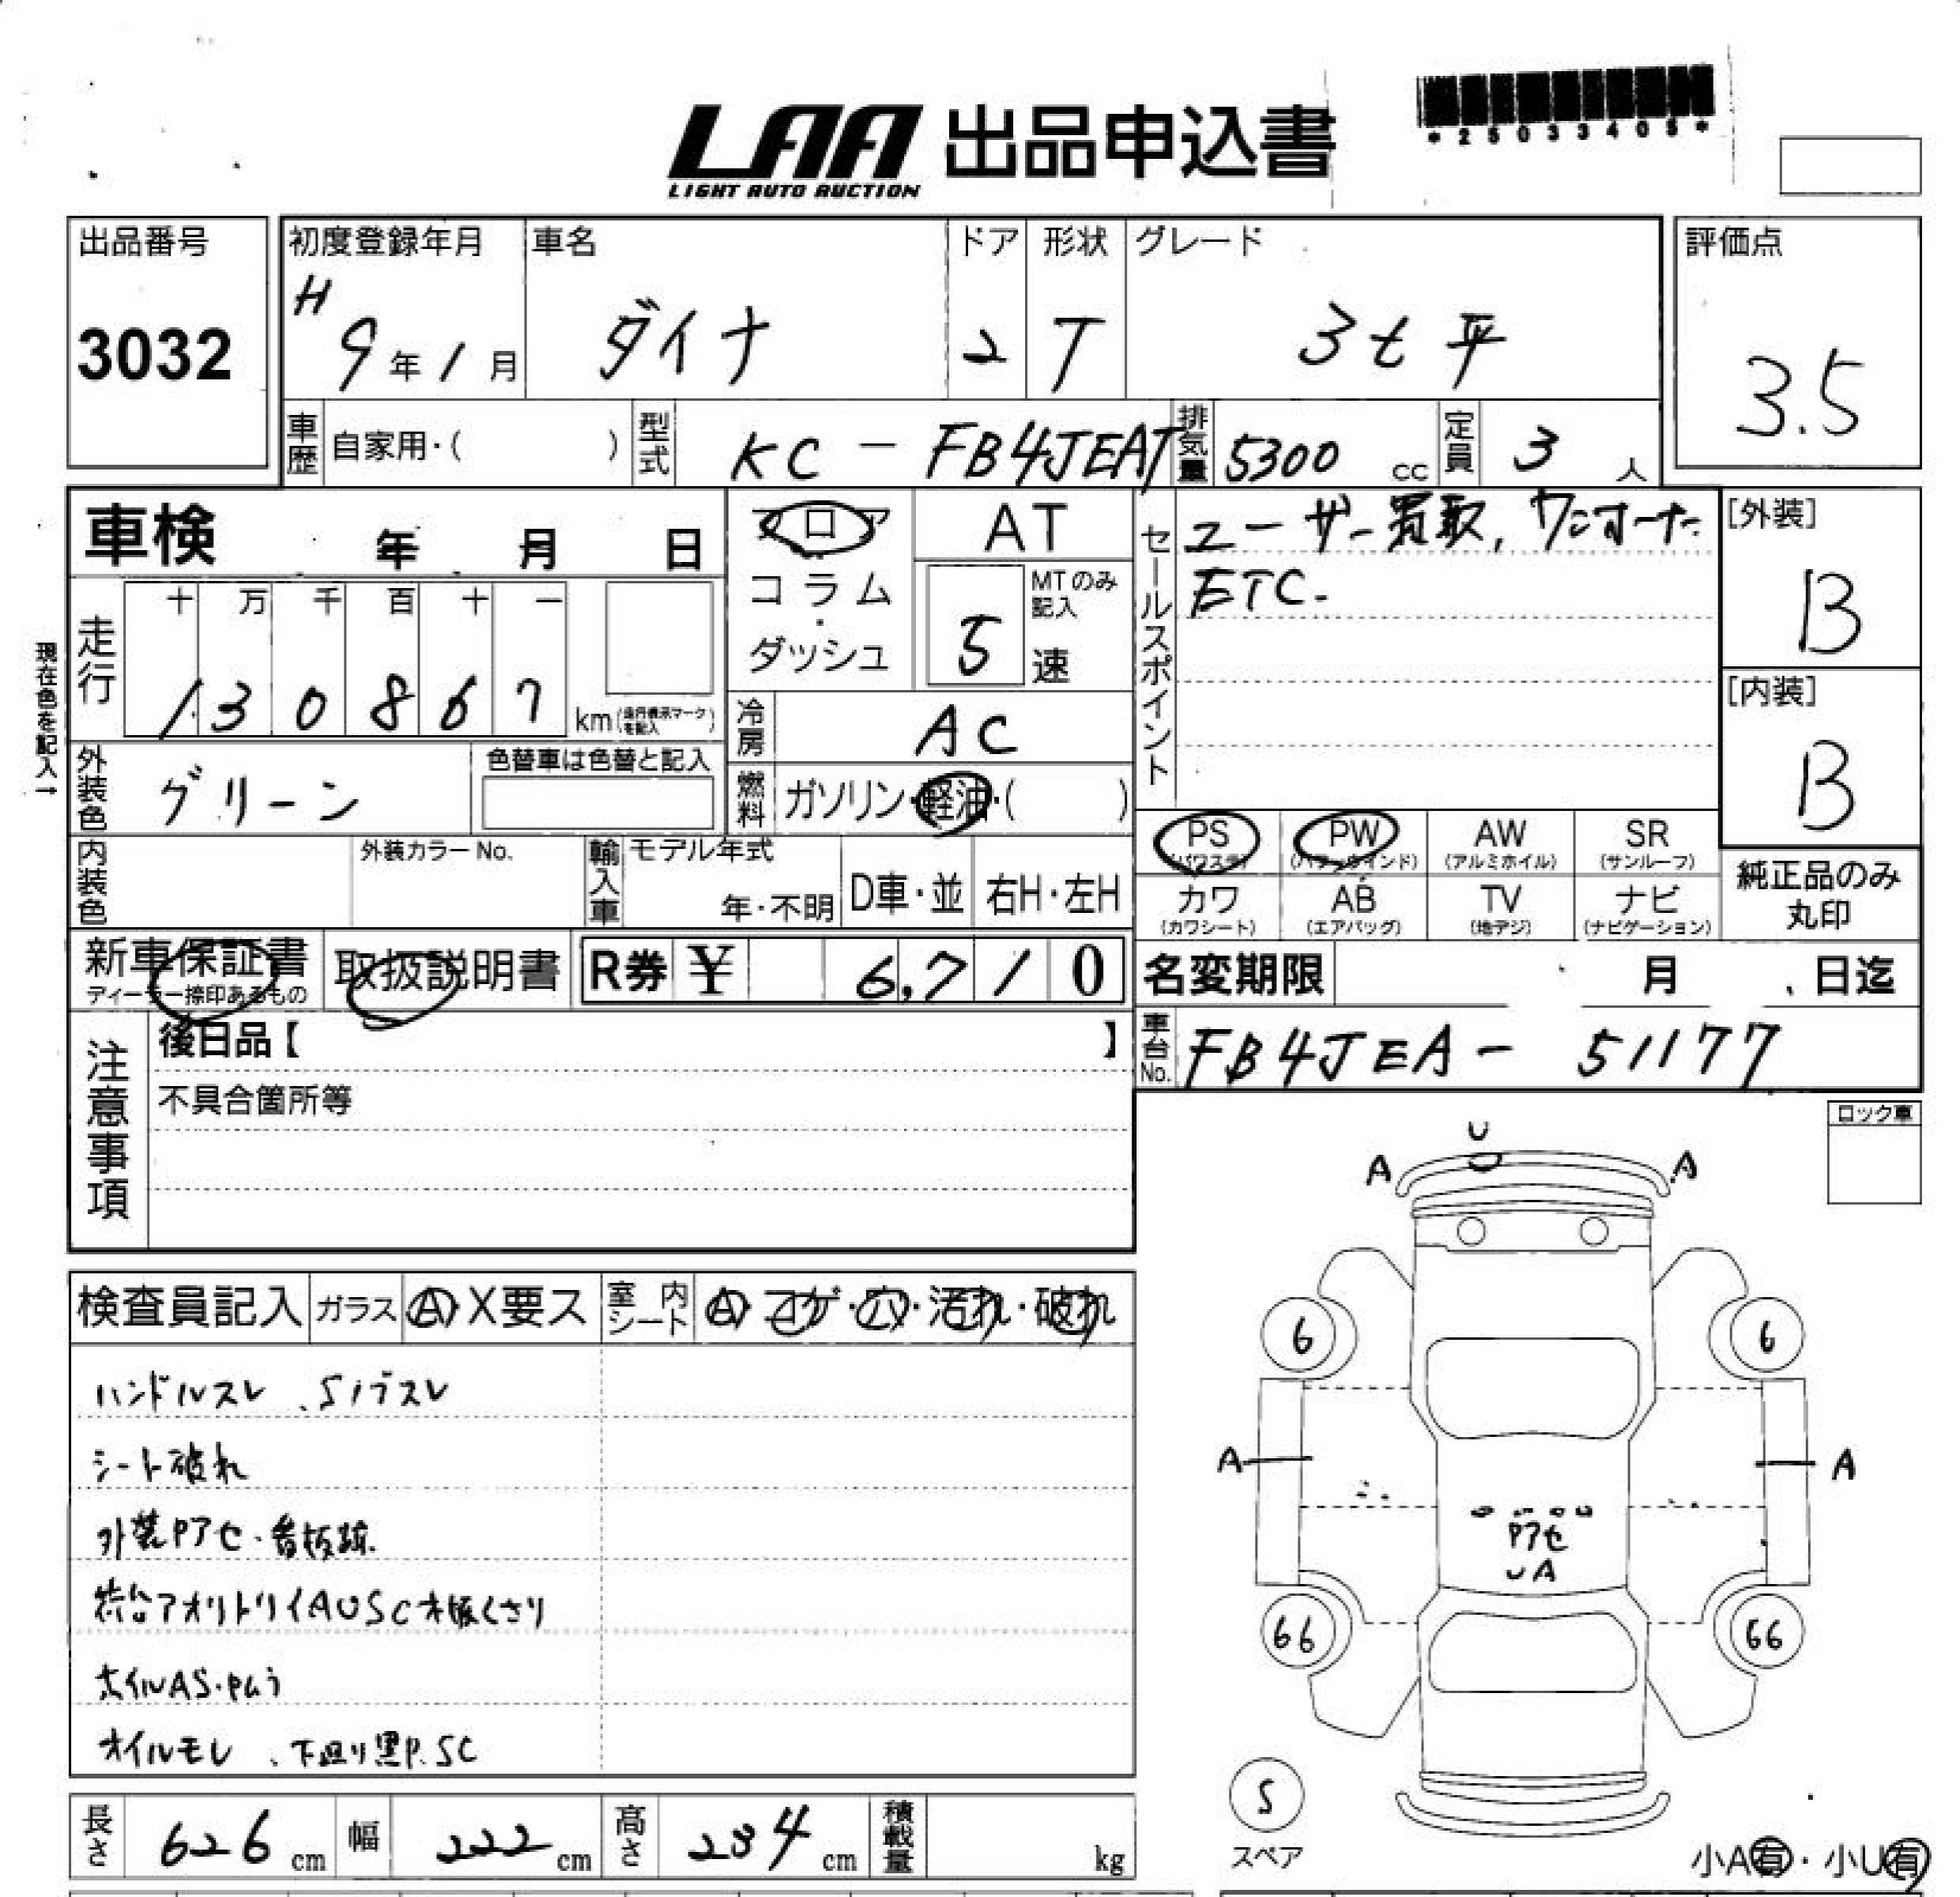 LAA 出品申込書
LIGHT AUTO AUCTION
*25033405*
出品番号
3032
初度登録年月
H
9年1月
車名
ダイナ
ドア
2
形状
T
グレード
3t 平
評価点
3.5
車歴
自家用・( )
型式
KC-FB4JEAT
排気量
5300 cc
定員
3 人
車検 年 月 日
フロア
コラム
・
ダッシュ
AT
5
MTのみ
記入
速
セールスポイント
ユーザー買取, ワンオーナー
ETC.
[外装]
B
[内装]
B
現在色を記入→
走行
十 万 千 百 十 一
1 3 0 8 6 7 km
(走行表示マークを記入)
冷房
AC
燃料
ガソリン・軽油・( )
外装色
グリーン
色替車は色替と記入
内装色
外装カラー No.
輸入車
モデル年式
年・不明
D車・並
右H・左H
PS
(パワステ)
PW
(パワーウインド)
AW
(アルミホイル)
SR
(サンルーフ)
カワ
(カワシート)
AB
(エアバッグ)
TV
(地デジ)
ナビ
(ナビゲーション)
純正品のみ
丸印
新車保証書
ディーラー捺印あるもの
取扱説明書
R券 ¥ 6,710
名変期限 月 日迄
車台No.
FB4JEA-51177
注意事項
後日品【 】
不具合箇所等
ロック車
U
A
A
6
6
A
A
Pアセ
UA
66
66
S
スペア
小A有・小U有
検査員記入
ガラス
A・X要ス
室内シート
A・コゲ・穴・汚れ・破れ
ハンドルスレ、Sノブスレ
シート破れ
外装Pアセ・看板跡
荷台アオリトリイAUSC木板くさり
ホイルAS・Pムラ
オイルモレ、下廻り黒P.SC
長さ
626 cm
幅
222 cm
高さ
234 cm
積載量
kg